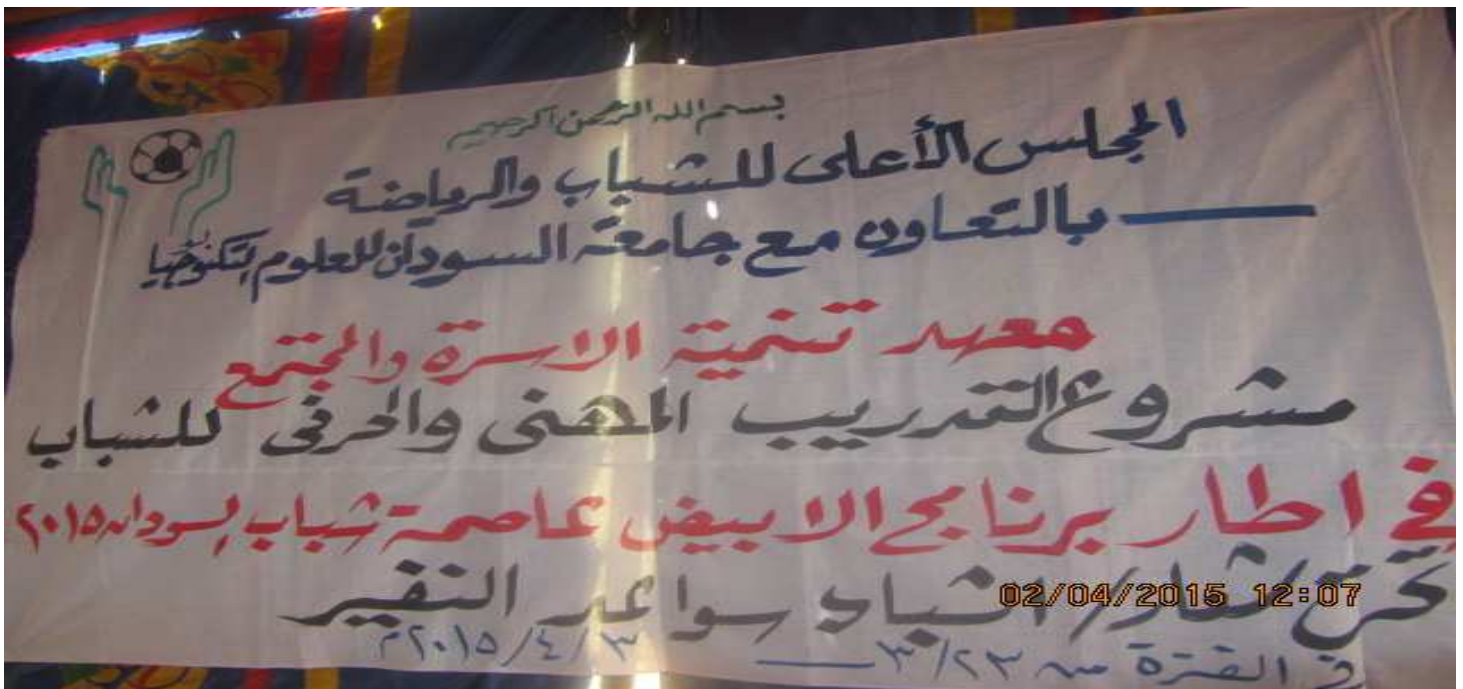 بسم الله الرحمن الرحيم
المجلس الأعلى للشباب والرياضة
بالتعاون مع جامعة السودان للعلوم والتكنولوجيا
معهد تنمية الاسرة والمجتمع
مشروع التدريب المهنى والحرفى للشباب
في اطار برنامج الابيض عاصمة شباب السودان ٢٠١٥
تحت شعار/ الشباب سواعد النفير
في الفترة من ٣/٢٣ — ٢٠١٥/٤/٣م
02/04/2015 12:07